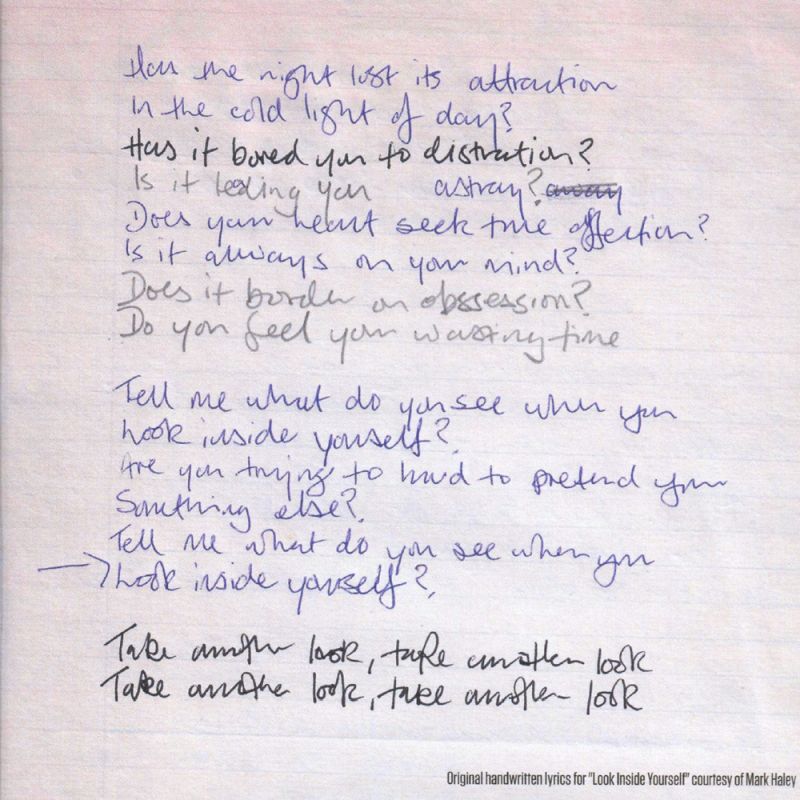 Has the night lost its attraction
In the cold light of day?
Has it bored you to distration?
Is it leading you astray? away
Does your heart seek true affection?
Is it always on your mind?
Does it border on obssession?
Do you feel your wasting time
Tell me what do you see when you
Look inside yourself?
Are you trying to hard to pretend your
Something else?
Tell me what do you see when you
Look inside yourself?
Take another look, take another look
Take another look, take another look
Original handwritten lyrics for "Look Inside Yourself" courtesy of Mark Haley